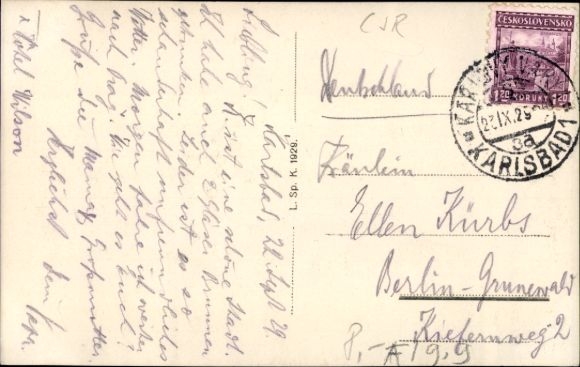 Karlsbad, 22. Sept. 29
Liebling! Ist eine schöne Stadt.
Ich habe auch 2 Gläser Brunnen
getrunken. Leider ist es so
unfreundliches
Wetter. Morgen fahre ich weiter
nach Prag. Wie geht es Euch?
Grüße die Mama & Großmutter.
Herzlichst Dein
Papa.
Hotel Wilson
L. Sp. K. 1929.
ČSR
Deutschland
Fräulein
Ellen Kürbs
Berlin-Grunewald
Kiefernweg 2
ČESKOSLOVENSKO
1.20 KORUNY 1.20
KARLOVY VARY 1
23.IX.29
9a
KARLSBAD 1